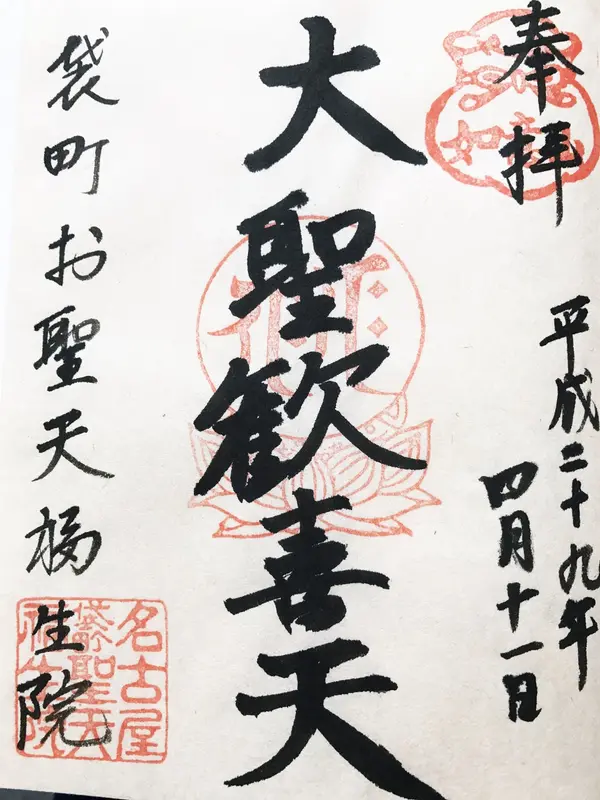 奉拝
平成二十九年
四月十一日
大聖歓喜天
袋町お聖天福生院
如意
名古屋
袋町聖天
福生院